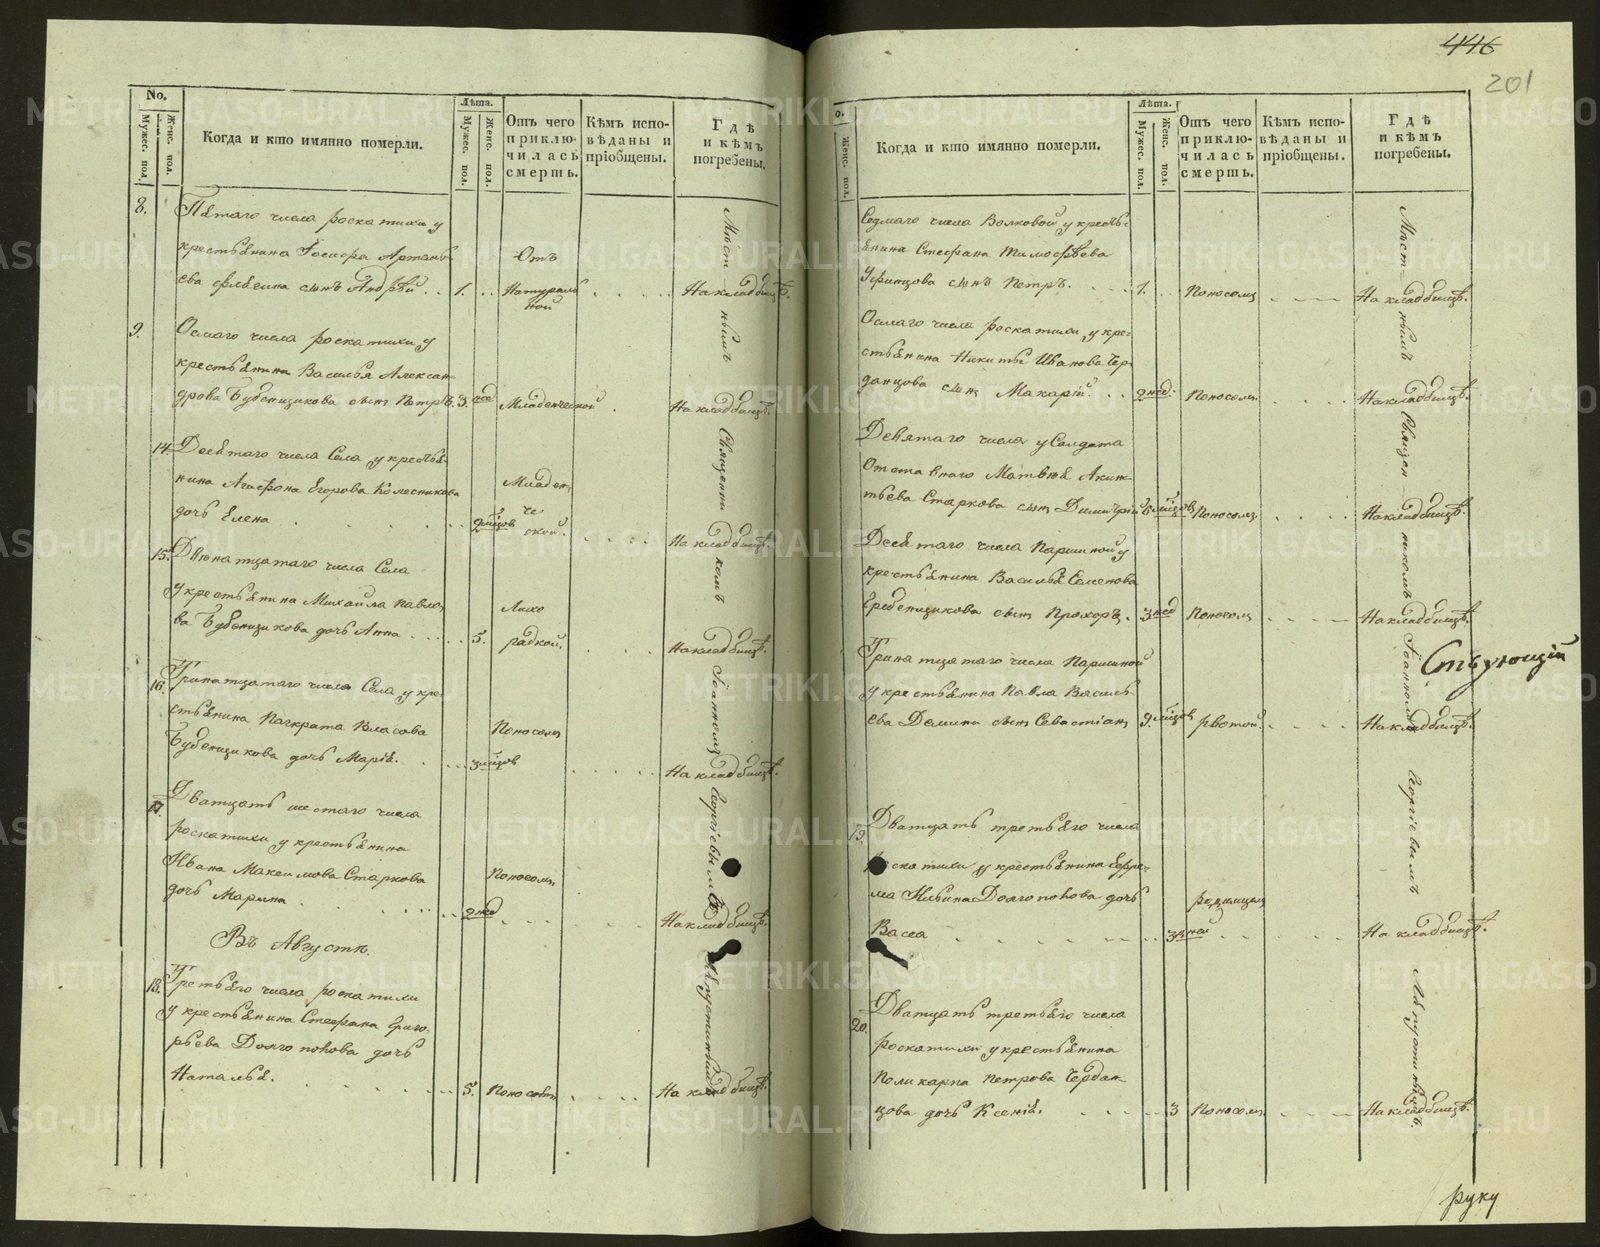 446
201
No.
Мужес. пол.
Женс. пол.
Когда и кто имянно померли.
Лѣта.
Мужес. пол.
Женс. пол.
Отъ чего приклю-чилась смерть.
Кѣмъ испо-вѣданы и пріобщены.
Гдѣ и кѣмъ погребены.
8.
Пятаго числа роскатихи у
крестьянина Іосифа Артемь
ева сынъ Андрѣй . . 1. . .
Отъ
Натураль
ной
На кладбищѣ.
9.
Осмаго числа роскатихи у
крестьянина Василья Алексан
дрова Бубенщикова сынъ Петръ. 3. нед
Младенческой
На кладбищѣ.
14.
Десятаго числа Села у крестья-
нина Агафона Егорова Колесникова
дочь Елена 2 мѣсцов
Младен
че
ской.
На кладбищѣ.
15.
Двенатцатаго числа Села
у крестьянина Михайла Павло
ва Бубенщикова дочь Анна 5.
Лихо
радкой.
На кладбищѣ.
16.
Тринатцатаго числа Села у кре-
стьянина Панкрата Власова
Бубенщикова дочь Марія. 3 мѣсцов
Поносомъ
На кладбищѣ.
17.
Дватцать шестаго числа
роскатихи у крестьянина
Ивана Максимова Старкова
дочь Марина 2 нед
Поносомъ
На кладбищѣ.
Въ Августѣ.
18.
Третьяго числа роскатихи
у крестьянина Стефана Григо
рьева Долгополова дочь
Наталья. 5.
Поносомъ
На кладбищѣ.
Мѣстнымъ Священникомъ Іоанномъ Георгіевымъ
о.
Женс. пол.
Когда и кто имянно померли.
Лѣта.
Мужес. пол.
Женс. пол.
Отъ чего приклю-чилась смерть.
Кѣмъ испо-вѣданы и пріобщены.
Гдѣ и кѣмъ погребены.
Седмаго числа Волковой у кресть-
янина Стефана Тимофѣева
Уфинцова сынъ Петръ. 1.
Поносомъ
На кладбищѣ.
Осмаго числа роскатихи, у кре-
стьянина Никиты Иванова Чер
данцова сынъ Макарій. 2 нед.
Поносомъ
На кладбищѣ.
Девятаго числа у Салдата
Отставнаго Матвѣя Акин
тьева Старкова сынъ Димитрій 5 мѣсцовъ
Поносомъ
На кладбищѣ.
Десятаго числа Паршиной у
крестьянина Василья Семенова
Гребенщикова сынъ Прохоръ. 3 нед
Поносомъ
На кладбищѣ.
Тринатцатаго числа Паршиной
у крестьянина Павла Василь
ева Демина сынъ Севастіанъ 9 мѣсцов
рвотой
На кладбищѣ.
19.
Дватцать третьяго числа
роскатихи у крестьянина Ефри-
ма Ильина Долгополова дочь
Васса 3 дней
родимцемъ
На кладбищѣ.
20.
Дватцать третьяго числа
роскатихи у крестьянина
Поликарпа Петрова Чердан
цова дочь Ксенія. 3
Поносомъ
На кладбищѣ.
Мѣстнымъ Священникомъ Іоанномъ Георгіевымъ
руку
METRIKI.GASO-URAL.RU